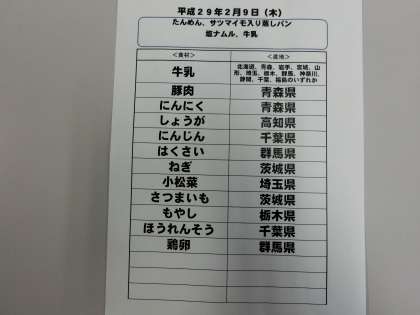 平成２９年２月９日（木）
たんめん、サツマイモ入り蒸しパン
塩ナムル、牛乳
＜食材＞ ＜産地＞
牛乳 北海道、青森、岩手、宮城、山
形、埼玉、栃木、群馬、神奈川、
静岡、千葉、福島のいずれか
豚肉 青森県
にんにく 青森県
しょうが 高知県
にんじん 千葉県
はくさい 群馬県
ねぎ 茨城県
小松菜 埼玉県
さつまいも 茨城県
もやし 栃木県
ほうれんそう 千葉県
鶏卵 群馬県